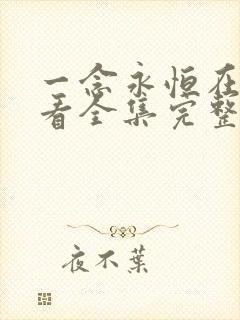 一念永恒在
看全集完整
夜不葉